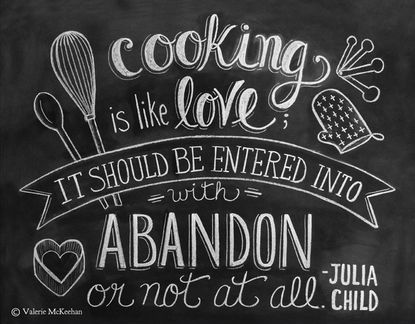 cooking
is like love;
IT SHOULD BE ENTERED INTO
with
ABANDON
or not at all.
-JULIA
CHILD
© Valerie McKeehan